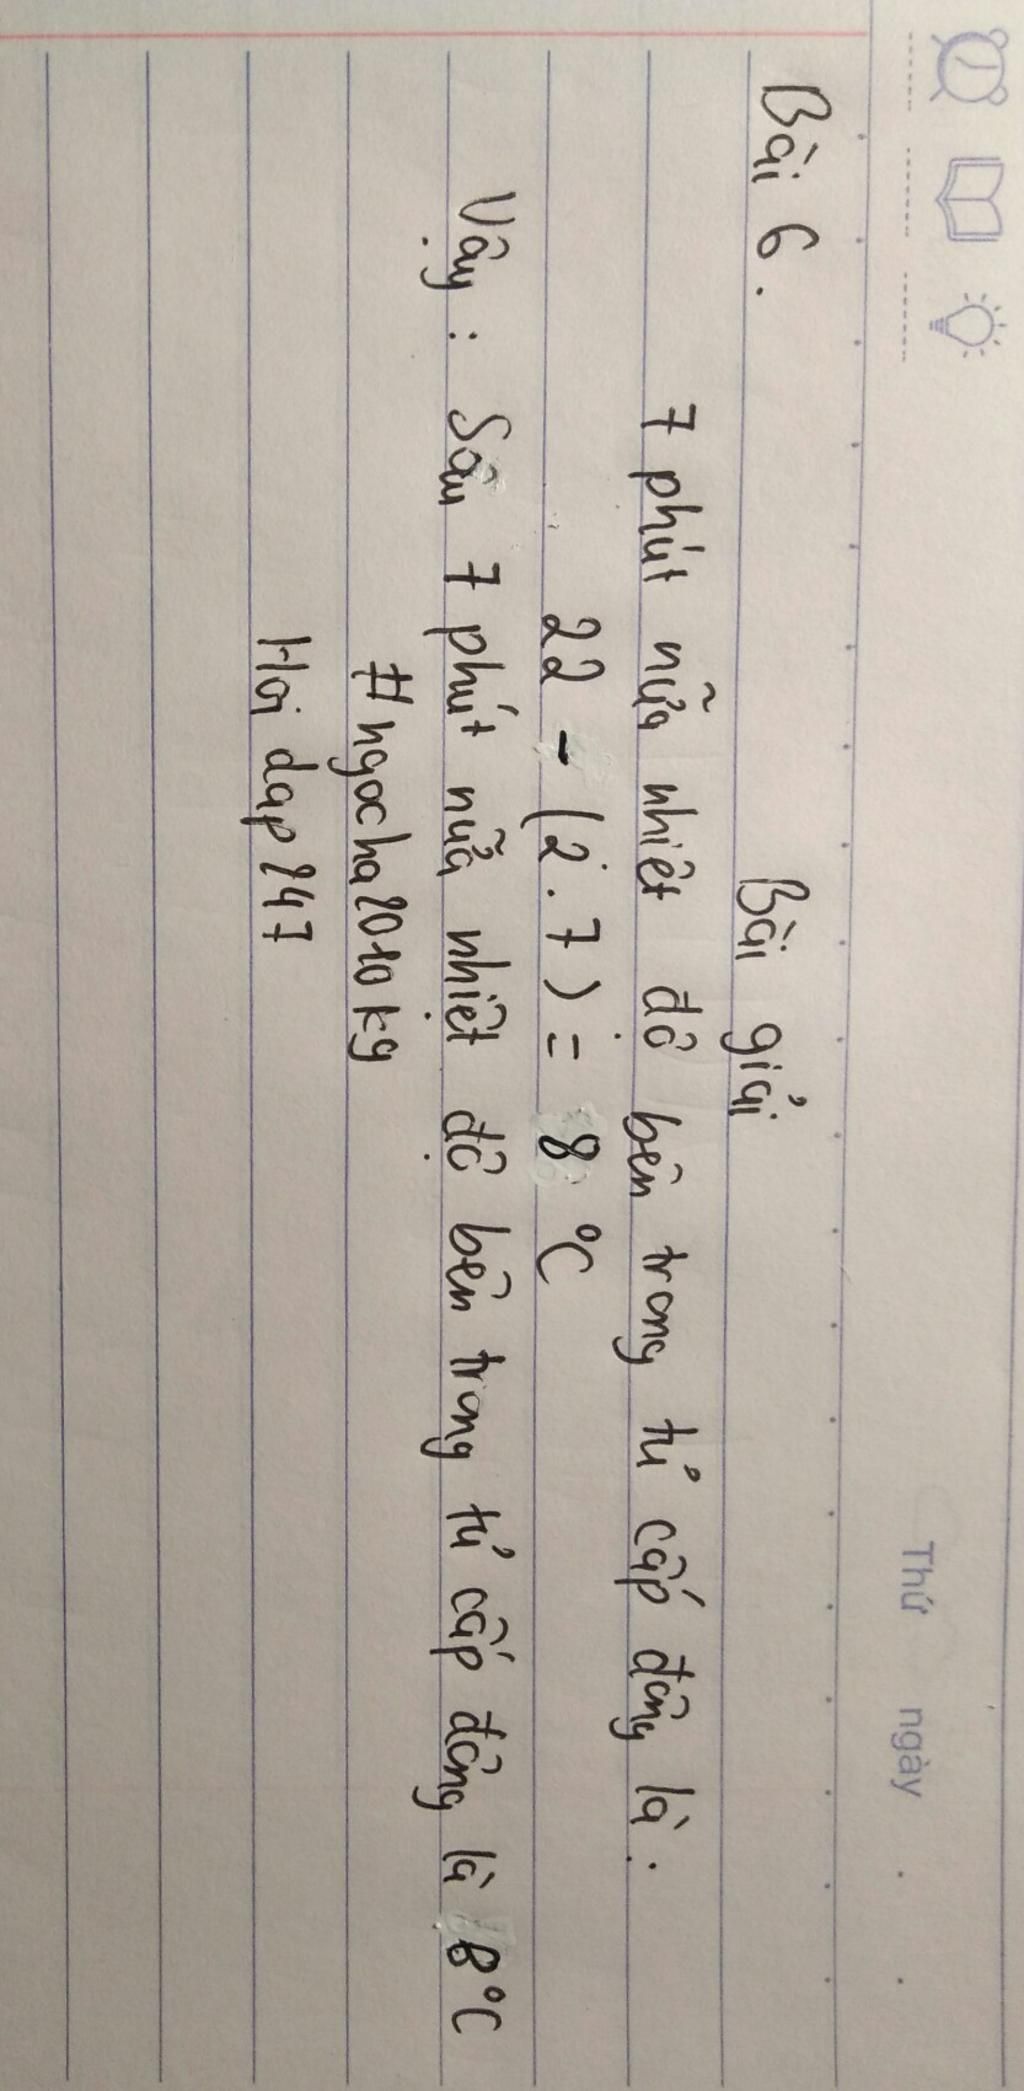 Thứ ngày
Bài 6.
Bài giải
7 phút nữa nhiệt độ bên trong tủ cấp đông là:
22 - (2.7) = 8 °C
Vậy : Sau 7 phút nữa nhiệt độ bên trong tủ cấp đông là 8°C
#ngocha2010kg
Hoi dap 247